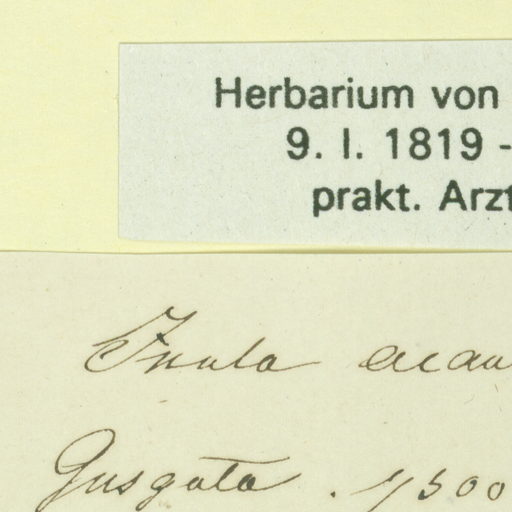 Herbarium von
9. I. 1819 -
prakt. Arzt
Inula acau
Gusguta . 7500